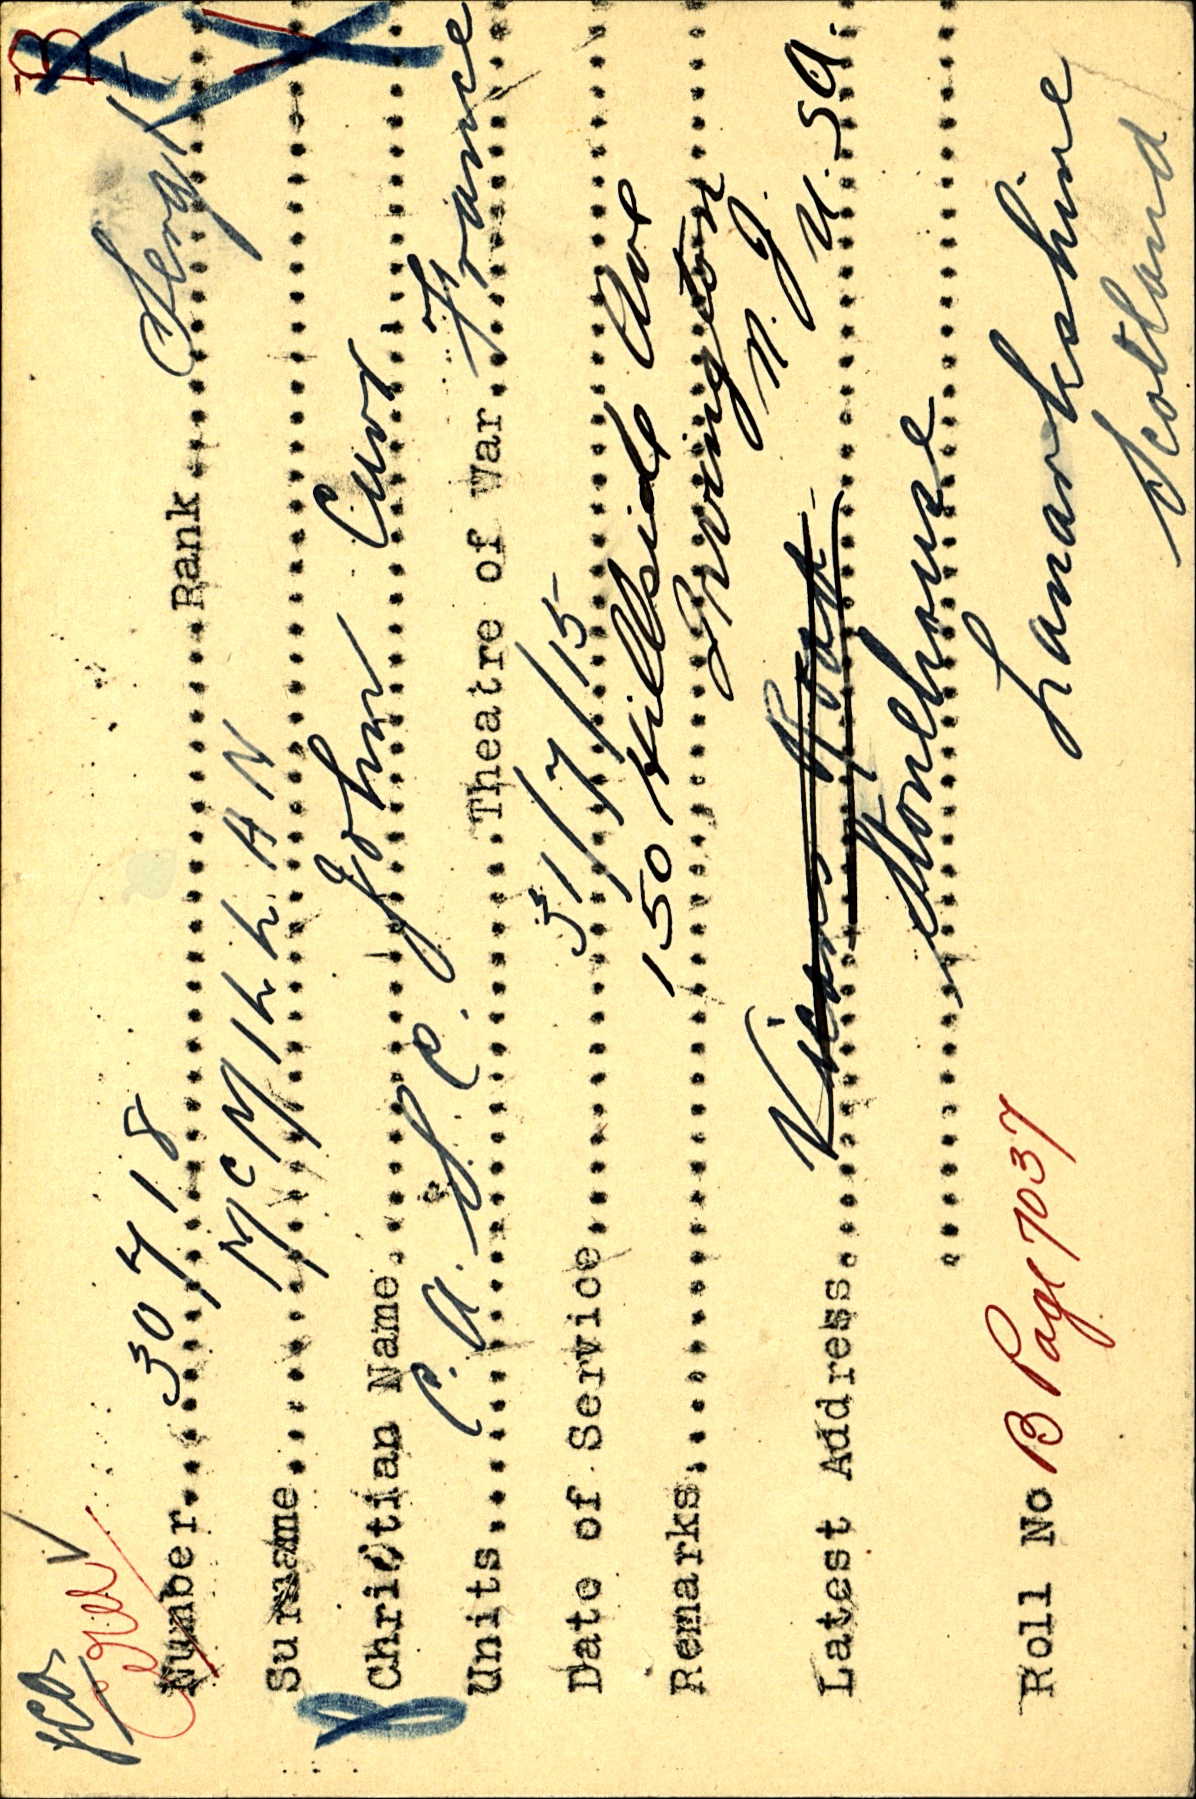 B
Number 30718 Rank Sergt
Surname McMILLAN
Christian Name John Curr
Units C.A.S.C. Theatre of War France
Date of Service 31/7/15
Remarks 150 Hillside Ave
Irvington
N. J.
U. S. A.
Latest Address
Stonehouse
Lanarkshire
Scotland
Roll No B Page 7037